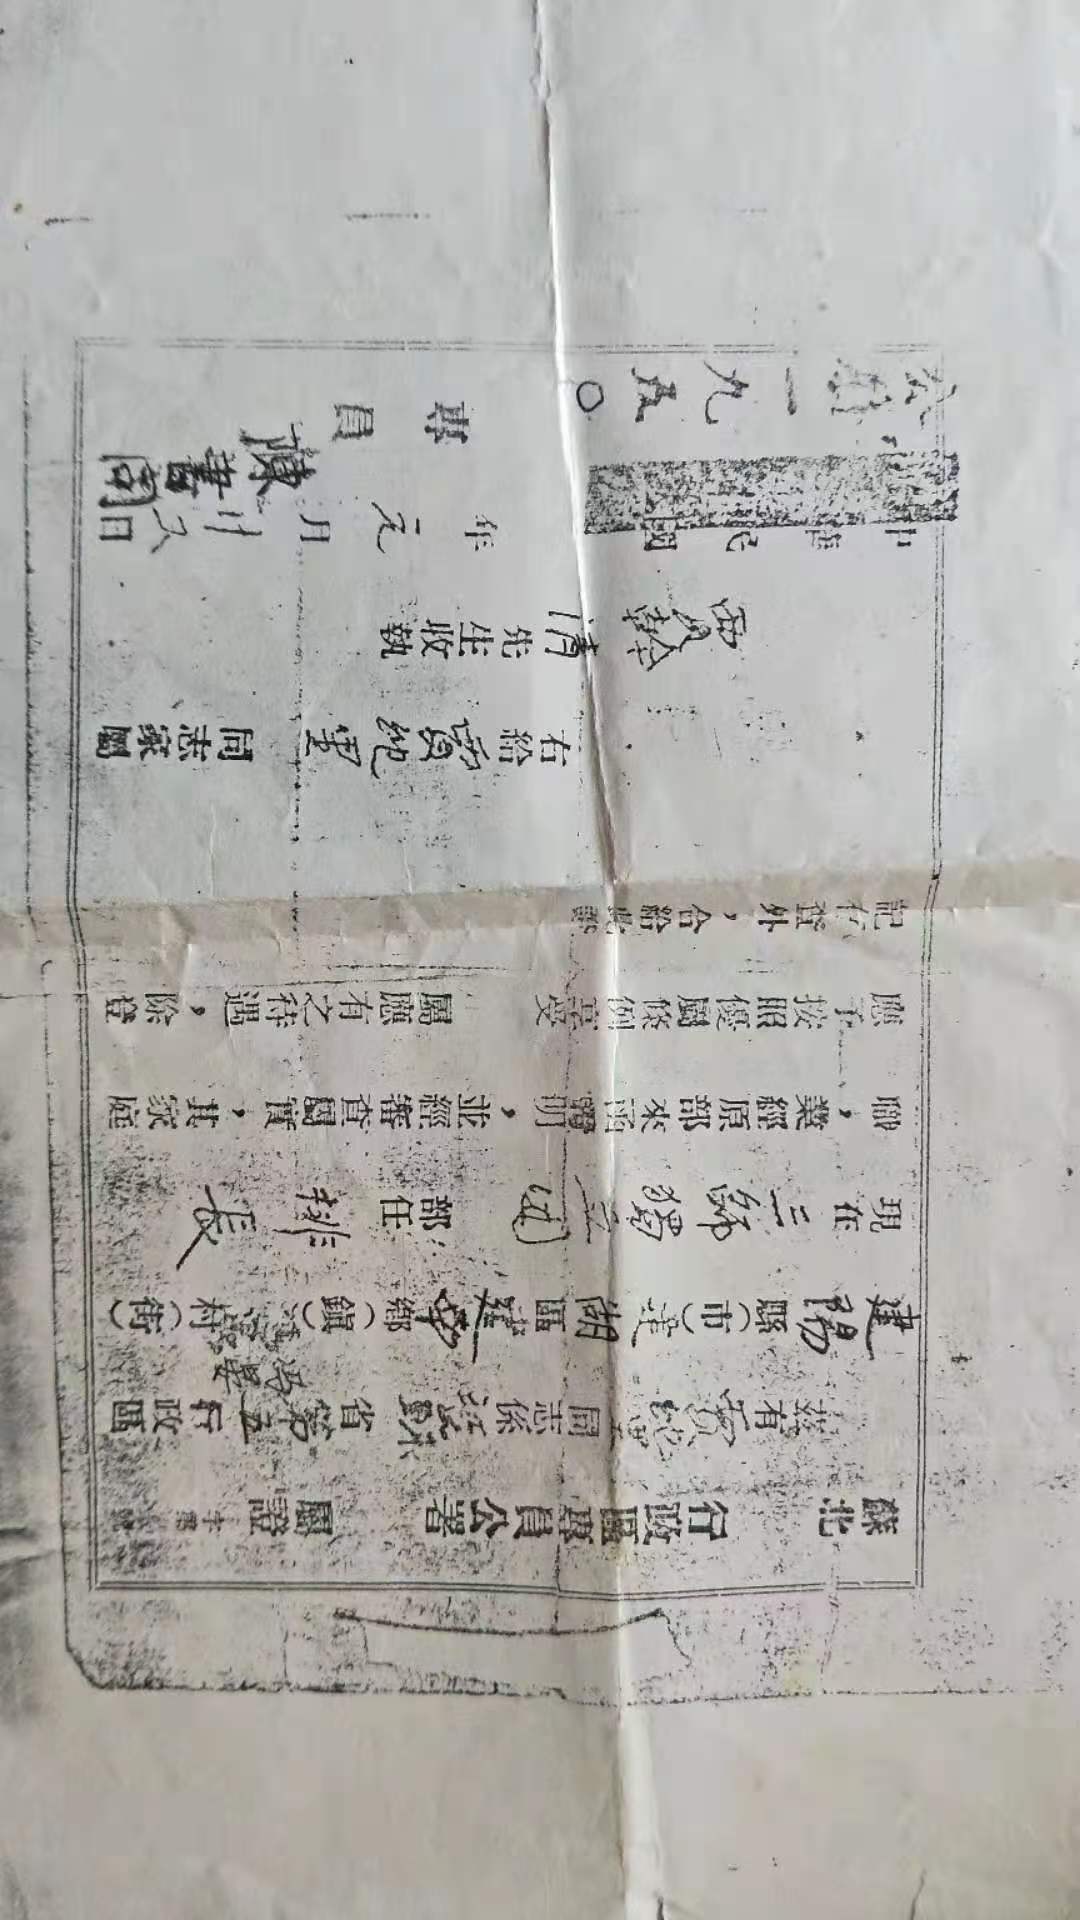 蘇北 行政區專員公署 屬證 字第 號
茲有賈純里同志係江蘇省第五行政區
馮晏
建陽縣(市)建湖區建華鄉(鎮)村(街)
現在三師獨立團部任排長
職，業經原部來函證明，並經審查屬實，其家庭
應予按照優屬條例享受 屬應有之待遇，除登
記存查外，合給此證
右給賈純里同志家屬
賈幹清先生收執
中華民國 年元月廿又日
公曆一九五〇
專員 陳書同